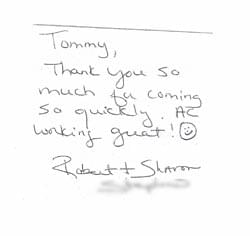 Tommy,
Thank you so
much for coming
so quickly. AC
working great! ☺
Robert + Sharon